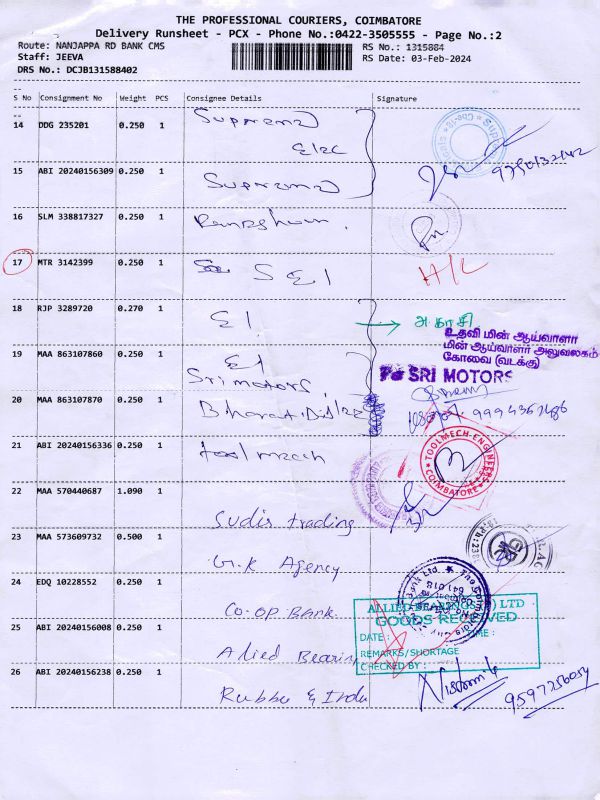 THE PROFESSIONAL COURIERS, COIMBATORE
Delivery Runsheet - PCX - Phone No.:0422-3505555 - Page No.:2
Route: NANJAPPA RD BANK CMS RS No.: 1315884
Staff: JEEVA RS Date: 03-Feb-2024
DRS No.: DCJB131588402
S No Consignment No Weight PCS Consignee Details Signature
14 DDG 235201 0.250 1 Suprema
Elec
15 ABI 20240156309 0.250 1 Suprema
16 SLM 338817327 0.250 1
17 MTR 3142399 0.250 1 S E 1 H/C
18 RJP 3289720 0.270 1 E 1
உதவி மின் ஆய்வாளர்
மின் ஆய்வாளர் அலுவலகம்
கோவை (வடக்கு)
19 MAA 863107860 0.250 1 E1
Sri motors, SRI MOTORS
20 MAA 863107870 0.250 1 Bharat
21 ABI 20240156336 0.250 1 tool mech TOOLMECH ENGINEERS COIMBATORE
22 MAA 570440687 1.090 1
Sudis trading
23 MAA 573609732 0.500 1
G.K Agency
24 EDQ 10228552 0.250 1
CO-OP Bank
ALLIED BEARINGS LTD
GOODS RECEIVED
25 ABI 20240156008 0.250 1 DATE : TIME :
Alied Bearing REMARKS/SHORTAGE
CHECKED BY :
26 ABI 20240156238 0.250 1
Rubber & Indu